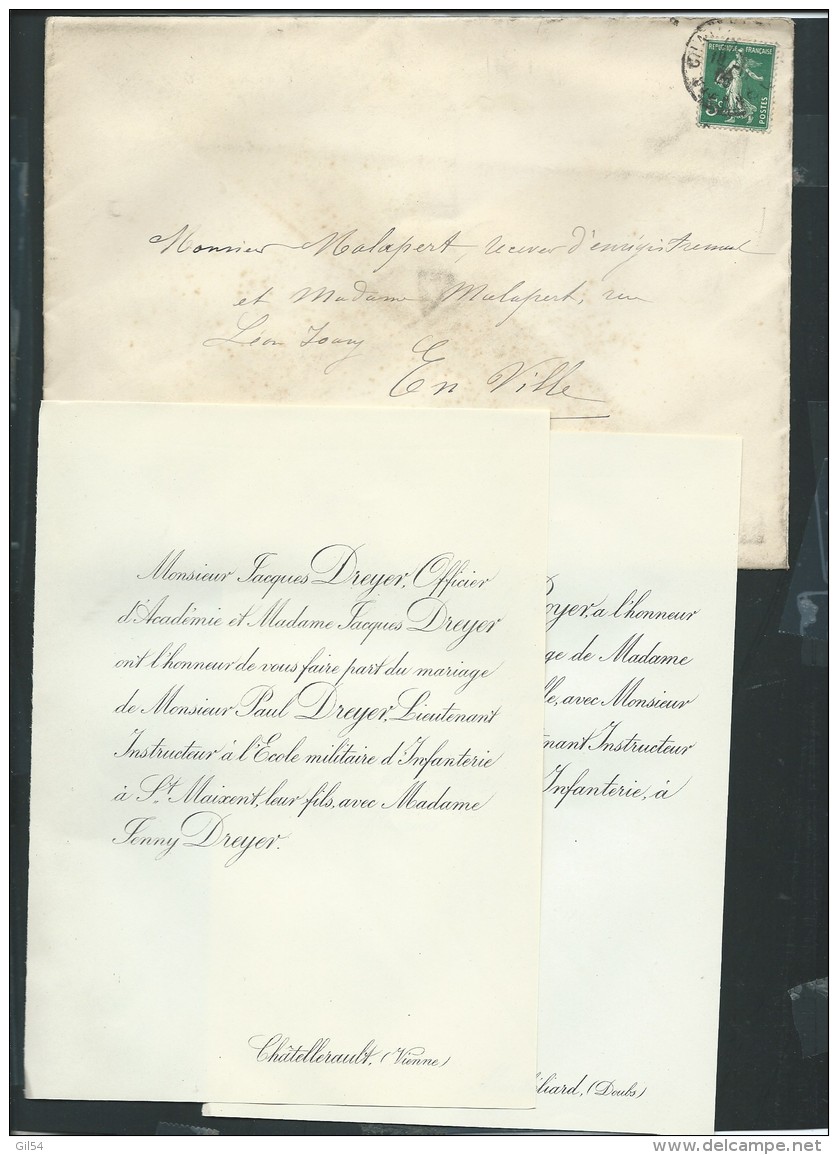 REPUBLIQUE FRANÇAISE
POSTES
Monsieur Malapert, receveur d'enregistrement
et Madame Malapert, rue
Léon
En Ville
Monsieur Jacques Dreyer, Officier
d'Académie et Madame Jacques Dreyer
ont l'honneur de vous faire part du mariage
de Monsieur Paul Dreyer, Lieutenant
Instructeur à l'Ecole militaire d'Infanterie
à St. Maixent, leur fils, avec Madame
Jenny Dreyer.
Châtellerault, (Vienne)
oyer, a l'honneur
ge de Madame
lle, avec Monsieur
tenant Instructeur
Infanterie, à
iliard, (Doubs)
Gil54
www.delcampe.net